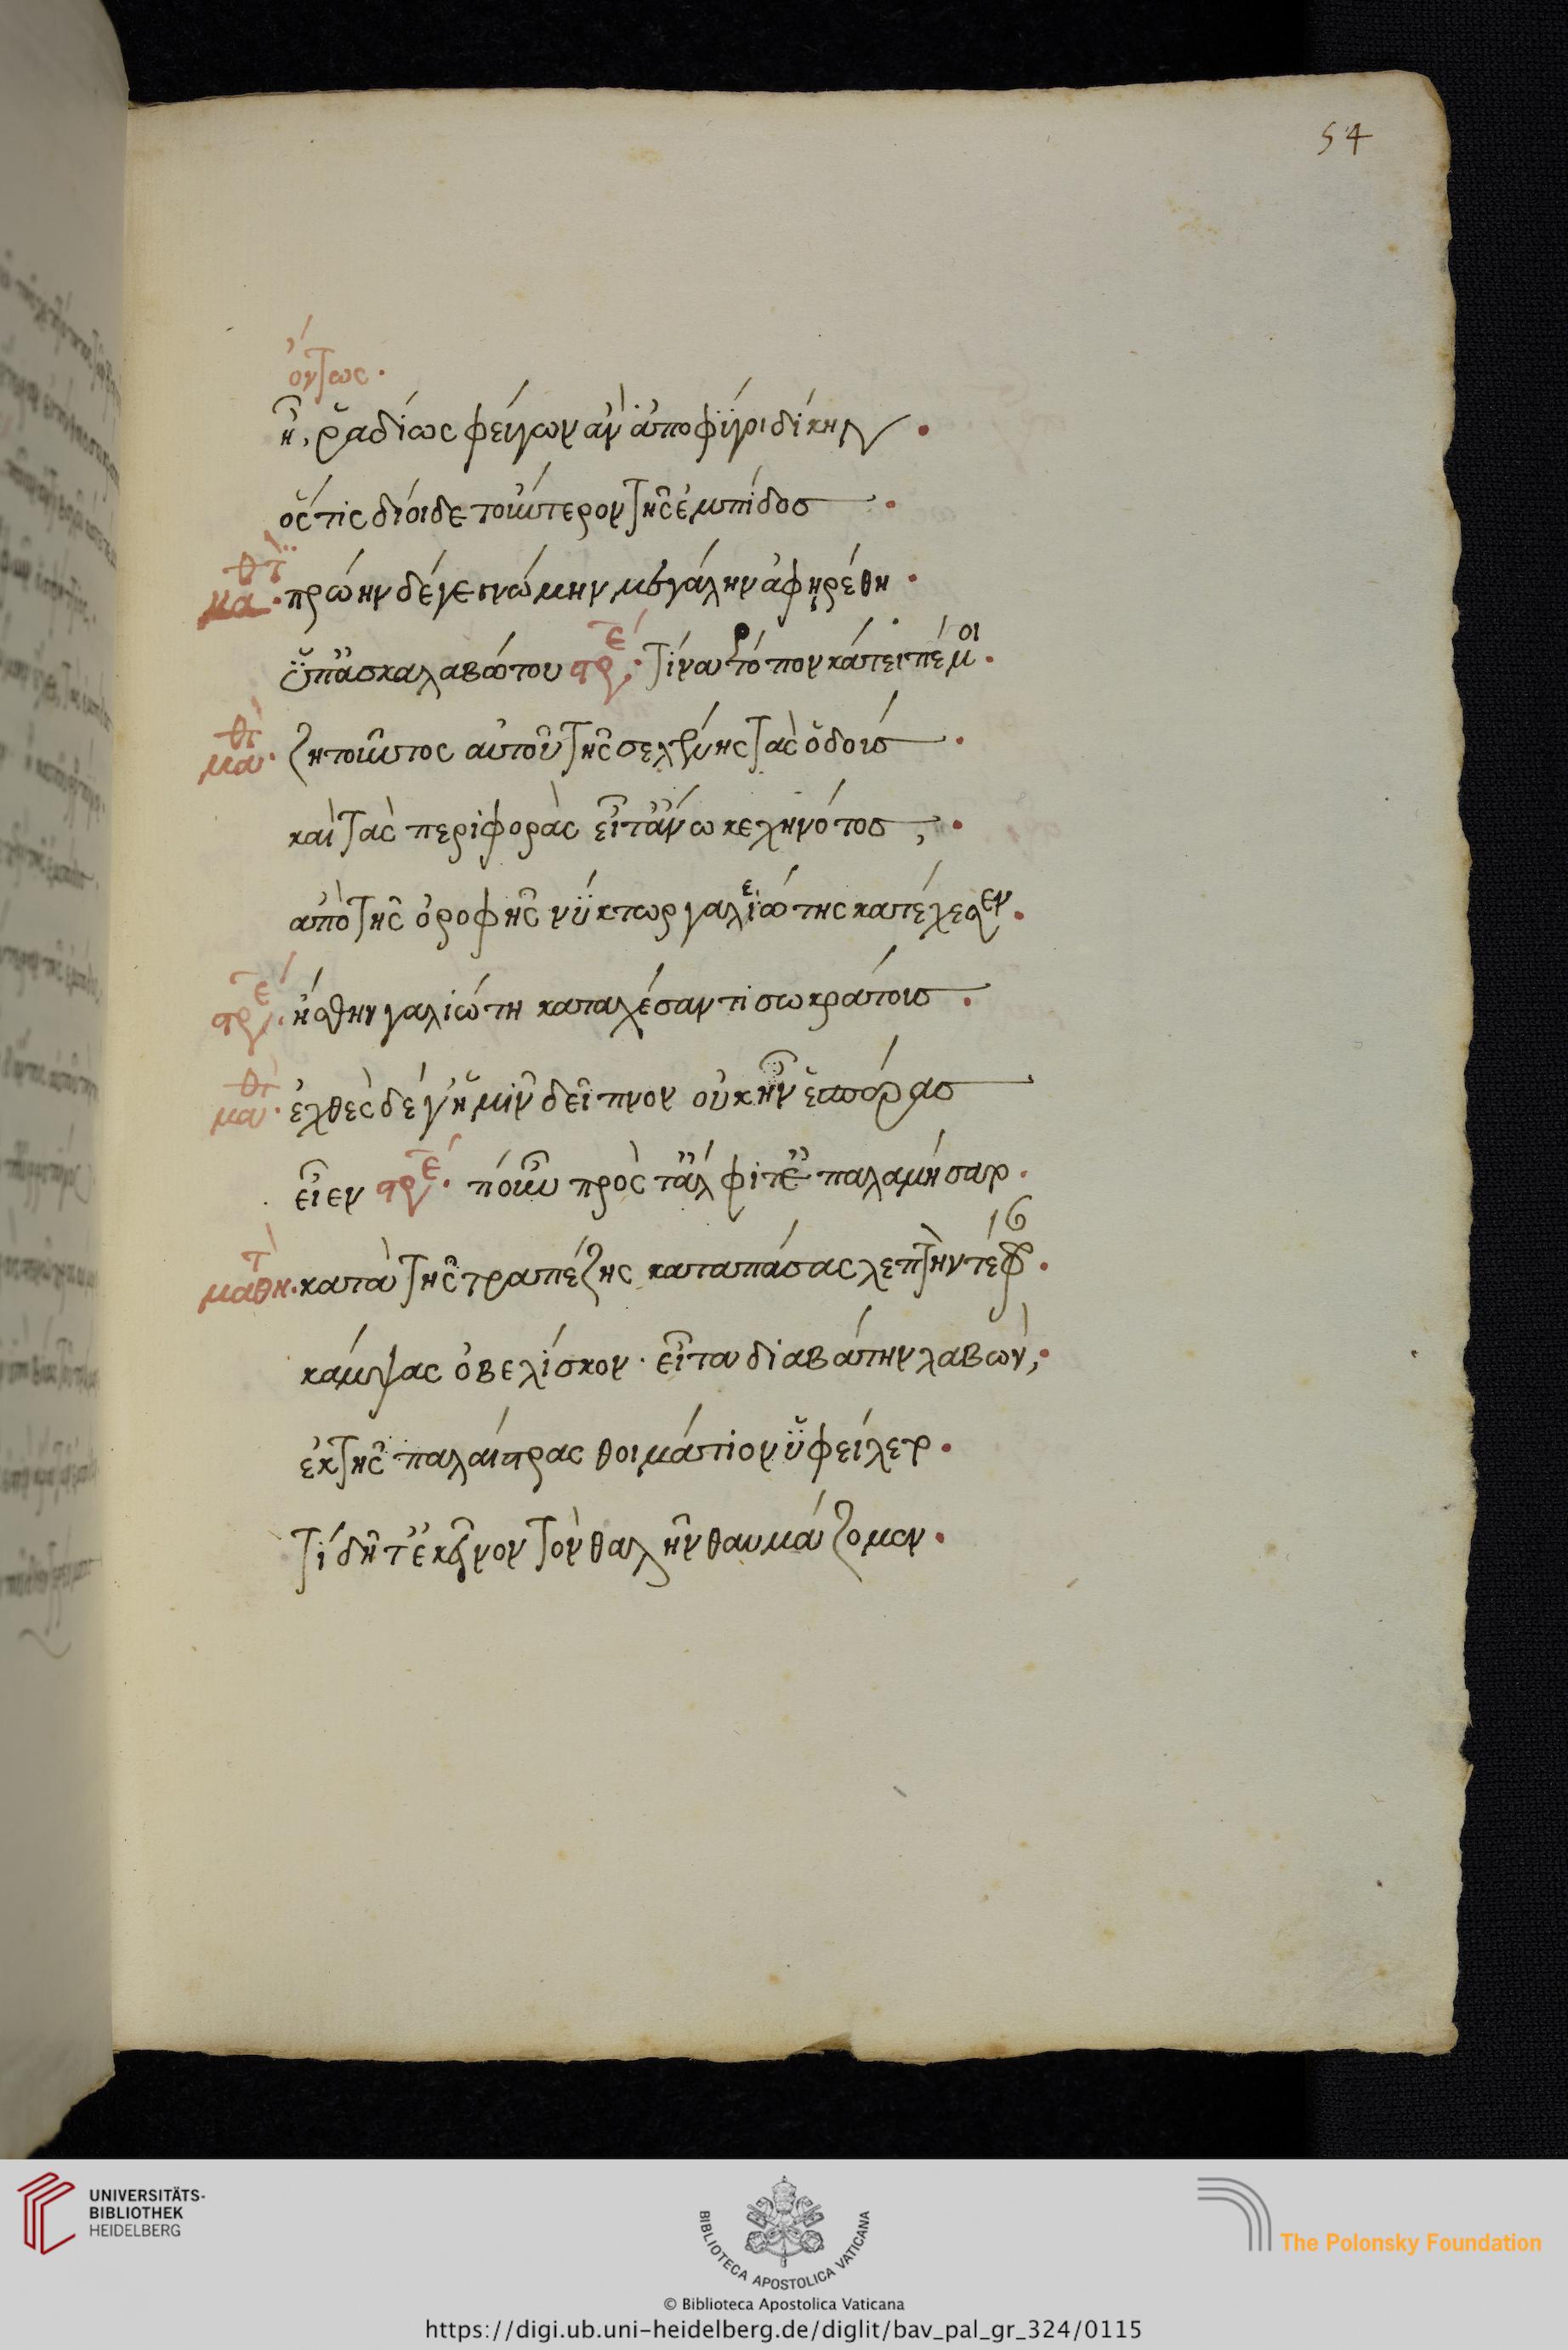 54
ὄντως.
ἦ, ῥαδίως φεύγων ἂν ἀποφύγοι δίκην.
ὅστις δίοιδε τοὔντερον τῆς ἐμπίδος.
μαθτ. πρώην δέ γε γνώμην μεγάλην ἀφηρέθη.
ὑπ' ἀσκαλαβώτου στρε. τίνα τρόπον κάτειπέ μοι.
μαθ. ζητοῦντος αὐτοῦ τῆς σελήνης τὰς ὁδοὺς.
καὶ τὰς περιφορὰς εἶτ' ἄνω κεχηνότος,.
ἀπὸ τῆς ὀροφῆς νύκτωρ γαλειώτης κατέχεσεν.
στρε. ἥσθην γαλιώτη καταχέσαντι σωκράτους.
μαθ. ἐχθὲς δέ γ' ἡμῖν δεῖπνον οὐκ ἦν ἑσπέρας
εἶεν στρε. τί οὖν πρὸς τἄλφιτ' ἐπαλαμήσατο.
μαθητ. κατὰ τῆς τραπέζης καταπάσας λεπτὴν τέφραν.
κάμψας ὀβελίσκον. εἶτα διαβήτην λαβὼν,.
ἐκ τῆς παλαίστρας θοἰμάτιον ὑφείλετο.
τί δῆτ' ἐκεῖνον τὸν θαλῆν θαυμάζομεν.
UNIVERSITÄTS-
BIBLIOTHEK
HEIDELBERG
BIBLIOTECA APOSTOLICA VATICANA
The Polonsky Foundation
© Biblioteca Apostolica Vaticana
https://digi.ub.uni-heidelberg.de/diglit/bav_pal_gr_324/0115